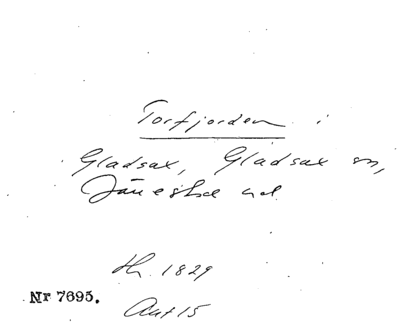 Torfjorden i
Gladsax, Gladsax sn,
Järrestad hd.
Hr. 1829
Nr 7695.
Aut 15